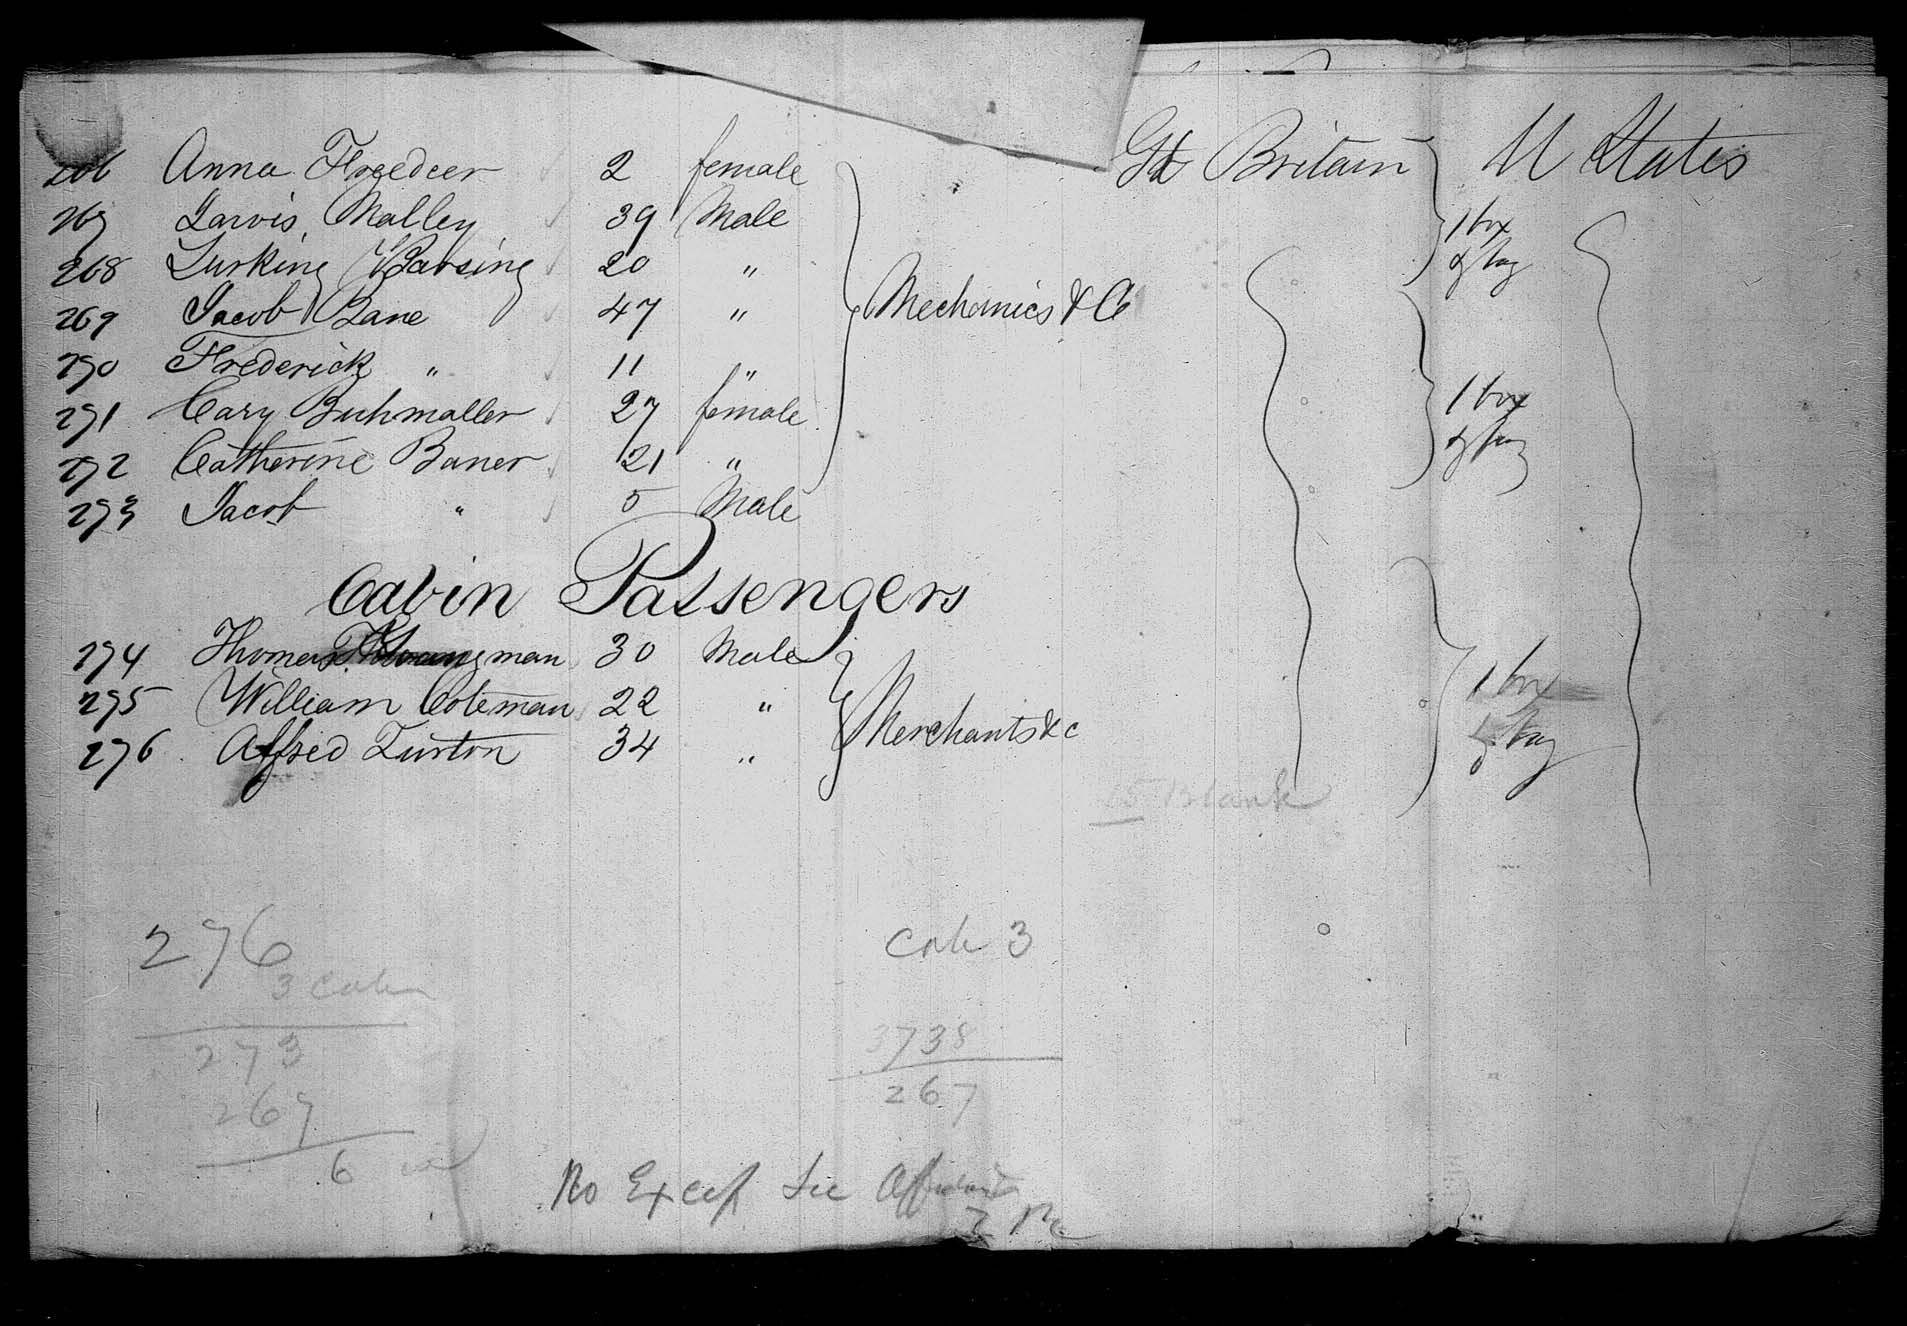 266 Anna Freedeer 2 female Gt Britain U States
267 Jarvis Malley 39 Male 1 box
268 Lurking Warsing 20 " & bag
269 Jacob Bane 47 " Mechanics & C
270 Frederick " 11 "
271 Cary Buhmaller 27 female 1 box
272 Catherine Baner 21 " & bag
273 Jacob " 5 Male
Cabin Passengers
274 Thomas Youngman 30 Male 1 box
275 William Coleman 22 " Merchants &c
276 Alfred Turton 34 " & bag
15 Blank
276 Cab 3
3 Cabin
273 3738
267 267
6
No Excep See Affidavit